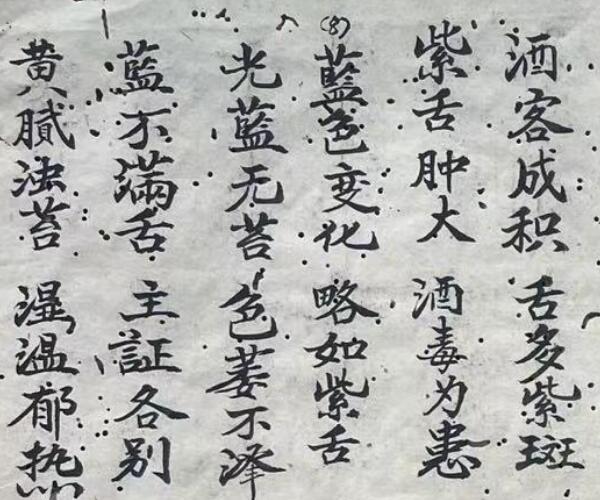 酒客成积 舌多紫斑
紫舌肿大 酒毒为患
(8)
藍色变化 略如紫舌
光藍无苔 色萎不泽
藍不滿舌 主証各别
黄腻浊苔 湿温郁热